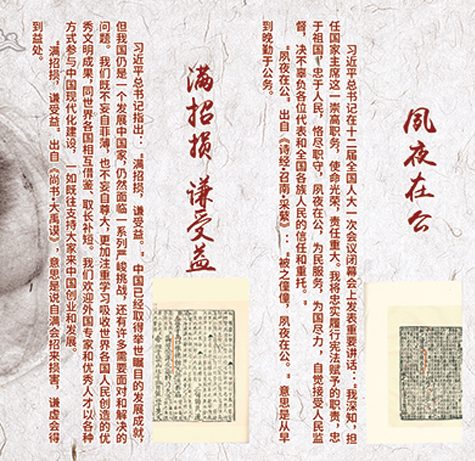 夙夜在公
习近平总书记在十二届全国人大一次会议闭幕会上发表重要讲话：“我深知，担
任国家主席这一崇高职务，使命光荣，责任重大。我将忠实履行宪法赋予的职责，忠
于祖国，忠于人民，恪尽职守，夙夜在公，为民服务，为国尽力，自觉接受人民监
督，决不辜负各位代表和全国各族人民的信任和重托。”
“夙夜在公。出自《诗经·召南·采蘩》：“被之僮僮，夙夜在公。”意思是从早
到晚勤于公务。
满招损 谦受益
习近平总书记指出：“满招损，谦受益。”中国已经取得举世瞩目的发展成就，
但我国仍是一个发展中国家，仍然面临一系列严峻挑战，还有许多需要面对和解决的
问题。我们既不妄自菲薄，也不妄自尊大，更加注重学习吸收世界各国人民创造的优
秀文明成果，同世界各国相互借鉴、取长补短。我们欢迎外国专家和优秀人才以各种
方式参与中国现代化建设，一如既往支持大家来中国创业和发展。
“满招损，谦受益。出自《尚书·大禹谟》，意思是说自满会招来损害，谦虚会得
到益处。